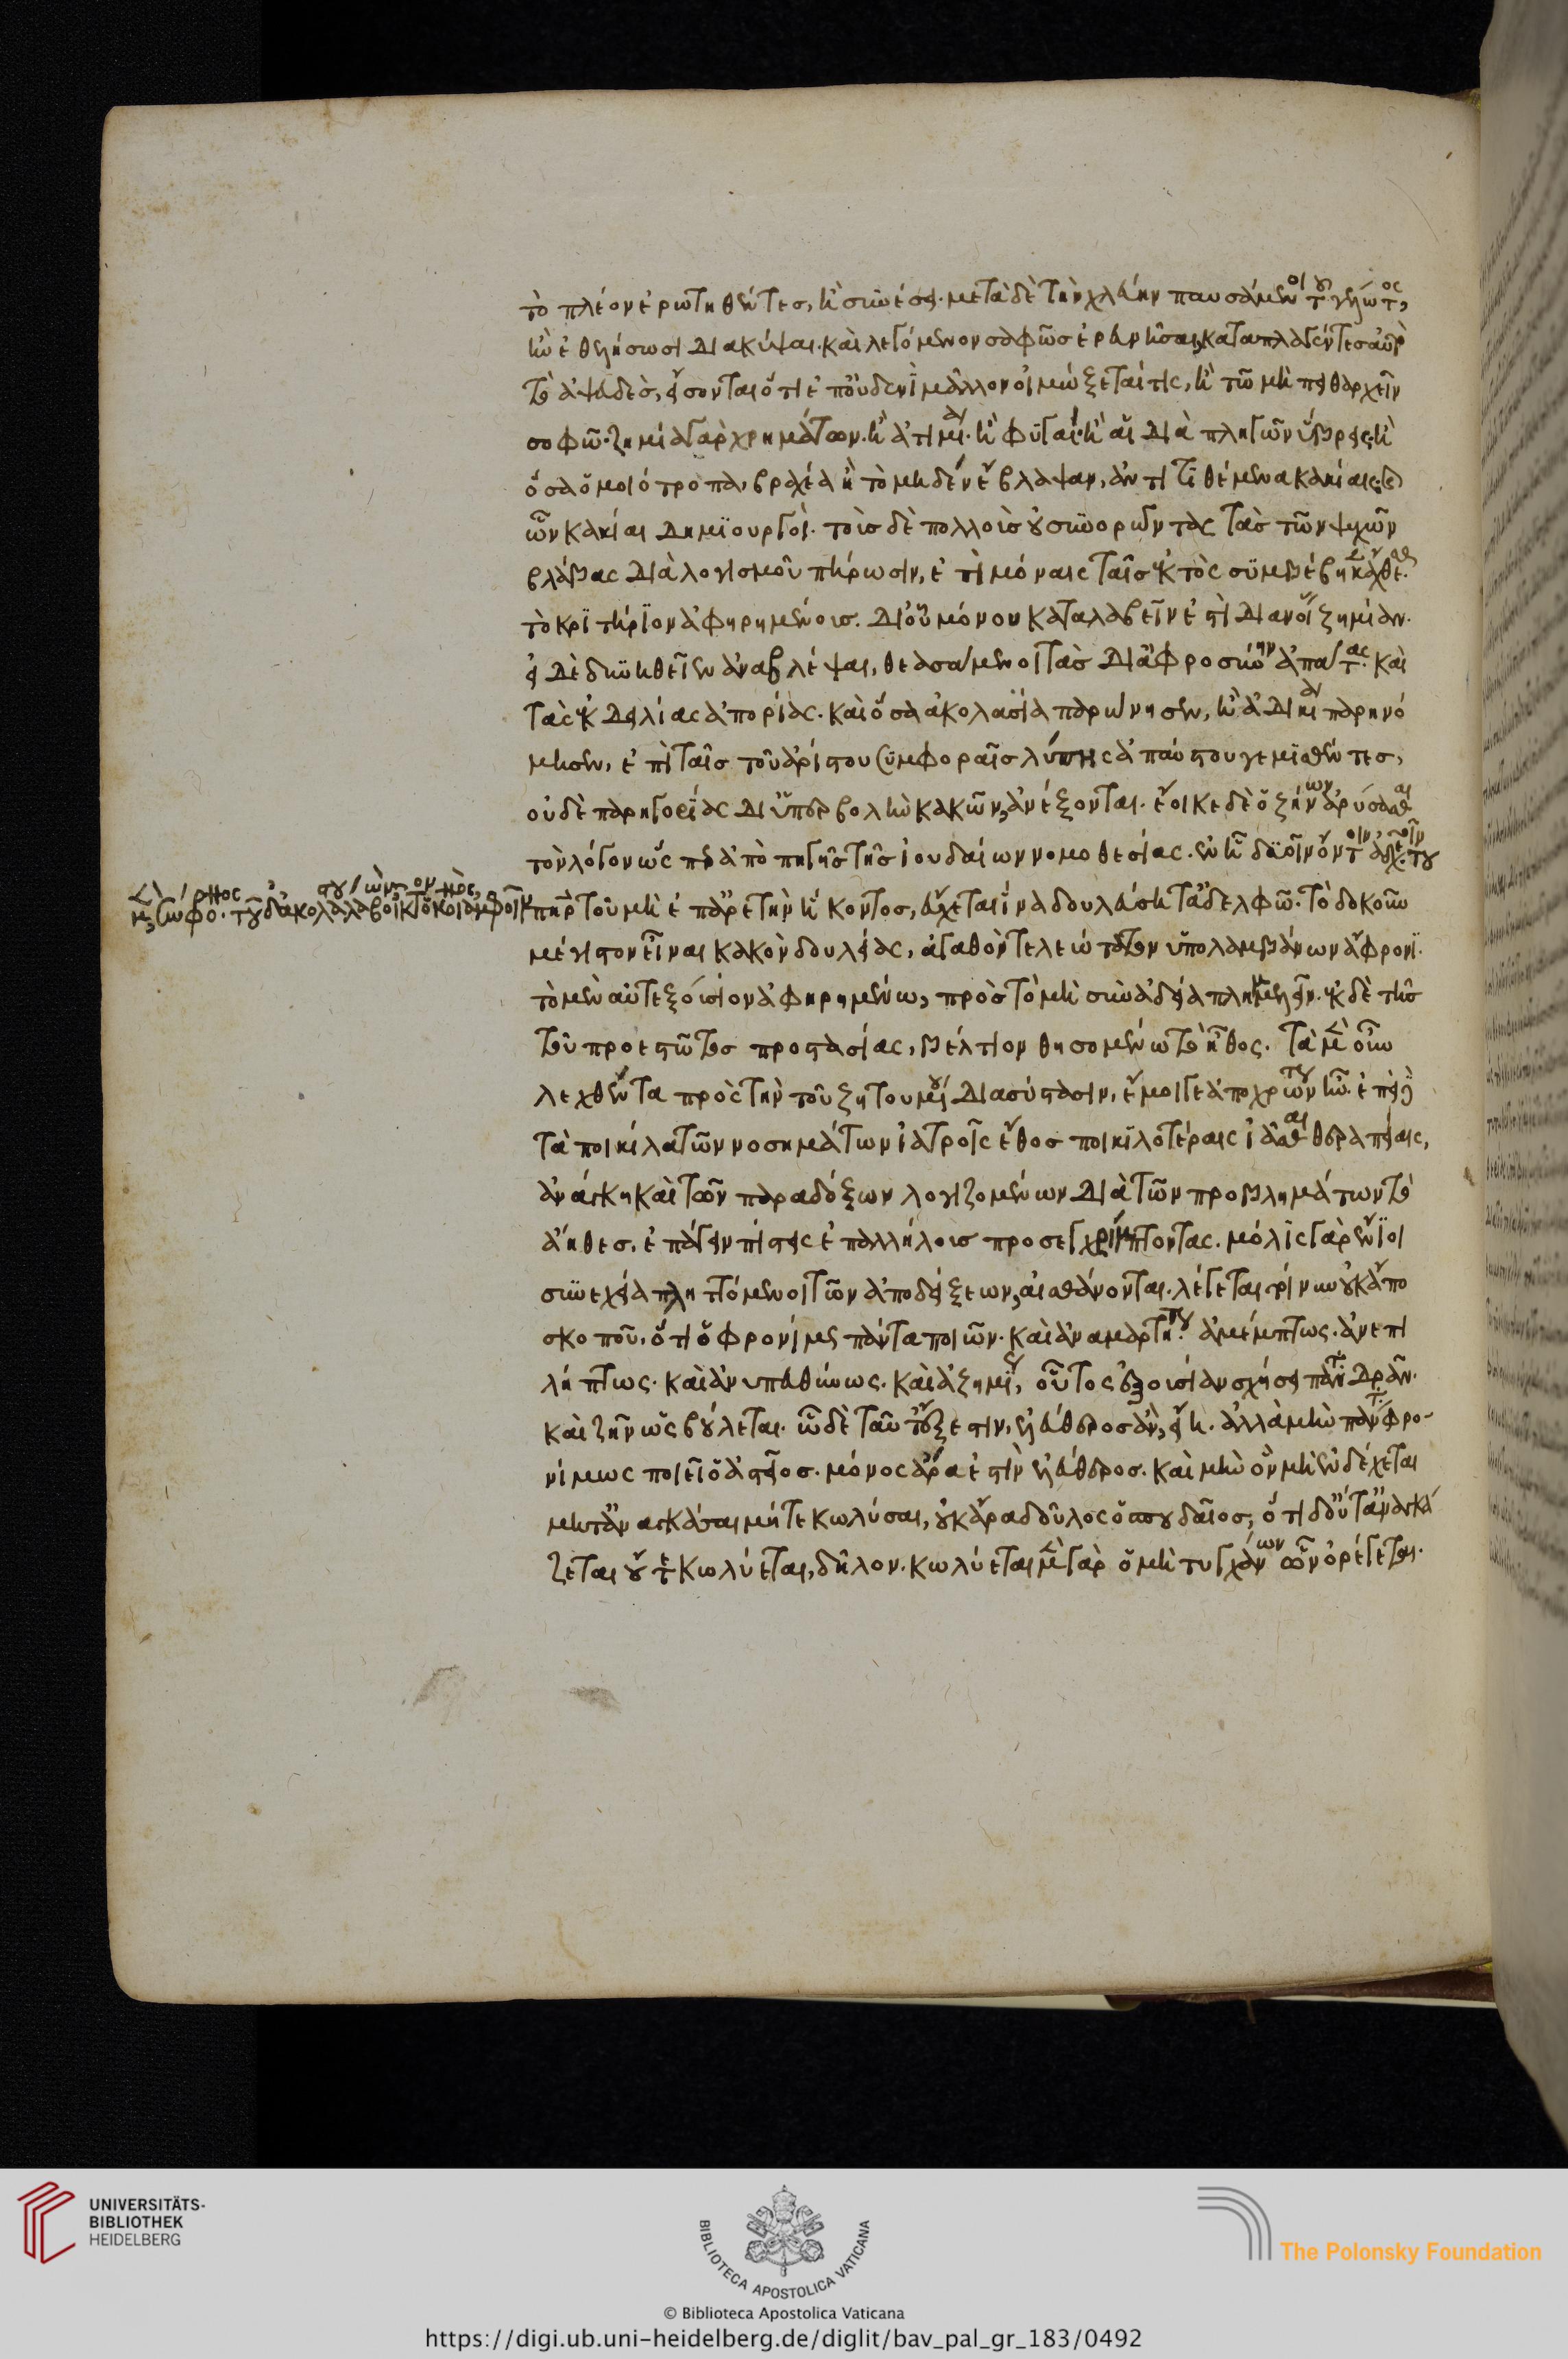 τὸ πλέον ἐρωτηθέντες, ἢ συνέσει. μετὰ δὲ τὴν χλεύην παυσάμενοι τοῦ γέλωτος,
ἢν ἐθελήσωσι διακύψαι. καὶ λεγόμενον σαφῶς ἐρευνῆσαι, καταπλαγέντες αὐτοῦ
τὸ ἀψευδὲς, εἴσονται ὅτι ἐπ' οὐδενὶ μᾶλλον οἰμώξεταί τις, ἢ τῶ μὴ πειθαρχεῖν
σοφῶ. ζημία γὰρ χρημάτων. ἢ ἀτιμία. ἢ φυγαί. ἢ αἱ διὰ πληγῶν ὕβρεις. ἢ
ὅσα ὁμοιότροπα, βραχέα καὶ τὸ μηδὲν ἔβλαψαν, ἀντιτιθέμενα κακίαις. καὶ
ὧν κακίαι δημιουργοί. τοῖς δὲ πολλοῖς οὐ συνορῶντας τὰς τῶν ψυχῶν
βλάβας διὰ λογισμοῦ πήρωσιν, ἐπὶ μόναις ταῖς ἐκτὸς συμβέβηκεν ἄχθεσθαι.
τὸ κριτήριον ἀφηρημένοις. δι' οὗ μόνου καταλαβεῖν ἐστὶ διανοίας ζημίαν.
εἰ δὲ δυνηθεῖεν ἀναβλέψαι, θεασάμενοι τὰς δι' ἀφροσύνην ἀπάτας. καὶ
τὰς ἐκ δειλίας ἀπορίας. καὶ ὅσα ἀκολασία παρώνησεν, ἢ ἀδικία παρηνό
μησεν, ἐπὶ ταῖς τοῦ ἀρίστου συμφοραῖς λύπης ἀπαύστου γεμισθέντες,
οὐδὲ παρηγορίας δι' ὑπερβολὴν κακῶν, ἀνέξονται. ἔοικε δὲ ὁ ζήνων ἀρύσασθαι
τὸν λόγον ὥσπερ ἀπὸ πηγῆς τῆς ἰουδαίων νομοθεσίας. ἐν ἧ δυοῖν ὄντοιν ἀδελφοῖν. τοῦ
μὲν σώφρονος. τοῦ δ' ἀκολάστου, λαβὼν οἶκτον ὁ κοινὸς ἀμφοῖν
πατὴρ τοῦ μὴ ἐπ' ἀρετὴν ἥκοντος, εὔχεται ἵνα δουλεύση τἀδελφῶ. τὸ δοκοῦν
μέγιστον εἶναι κακὸν δουλείας, ἀγαθὸν τελεώτατον ὑπολαμβάνων ἄφρονι.
τὸ μὲν αὐτεξούσιον ἀφηρημένω, πρὸς τὸ μὴ σὺν ἀδεία πλημμελεῖν. ἐκ δὲ τῆς
τοῦ προεστῶτος προστασίας, βελτιονθησομένω τὸ ἦθος. τὰ μὲν οὖν
λεχθέντα πρὸς τὴν τοῦ ζητουμένου διασύστασιν, ἔμοιγε ἀποχρώντως ἦν. ἐπεὶ δὲ
τὰ ποικίλα τῶν νοσημάτων ἰατροῖς ἔθος ποικιλοτέραις ἰᾶσθαι θεραπείαις,
ἀνάγκη καὶ τῶν παραδόξων λογιζομένων διὰ τῶν προβλημάτων τὸ
ἄηθες, ἐπάγειν πίστεις ἐπαλλήλοις προσεγχρίμπτοντας. μόλις γὰρ ἔνιοι
συνεχεία πληττόμενοι τῶν ἀποδείξεων, αἰσθάνονται. λέγεται τοίνυν οὐκ ἄπο
σκοποῦ, ὅτι ὁ φρονίμως πάντα ποιῶν. καὶ ἀναμαρτήτως. ἀμέμπτως. ἀνεπι
λήπτως. καὶ ἀνυπευθύνως. καὶ ἀζημίως, οὗτος ἐξουσίαν σχήσει πάντα δρᾶν.
καὶ ζῆν ὡς βούλεται. ὧ δὲ ταῦτ' ἔξεστιν, ἐλεύθερος ἂν, εἴη. ἀλλὰ μὴν πάντα φρο-
νίμως ποιεῖ ὁ ἀστεῖος. μόνος ἄρα ἐστὶν ἐλεύθερος. καὶ μὴν ὃν μὴ ἐνδέχεται
μήτ' ἀναγκάσαι μήτε κωλῦσαι, οὐκ ἄρα δοῦλος ὁ σπουδαῖος; ὅτι δ' οὔτ' ἀναγκά
ζεται οὔτε κωλύεται, δῆλον. κωλύεται μὲν γὰρ ὁ μὴ τυγχάνων ὧν ὀρέγεται.
UNIVERSITÄTS-
BIBLIOTHEK
HEIDELBERG
BIBLIOTECA APOSTOLICA VATICANA
The Polonsky Foundation
© Biblioteca Apostolica Vaticana
https://digi.ub.uni-heidelberg.de/diglit/bav_pal_gr_183/0492